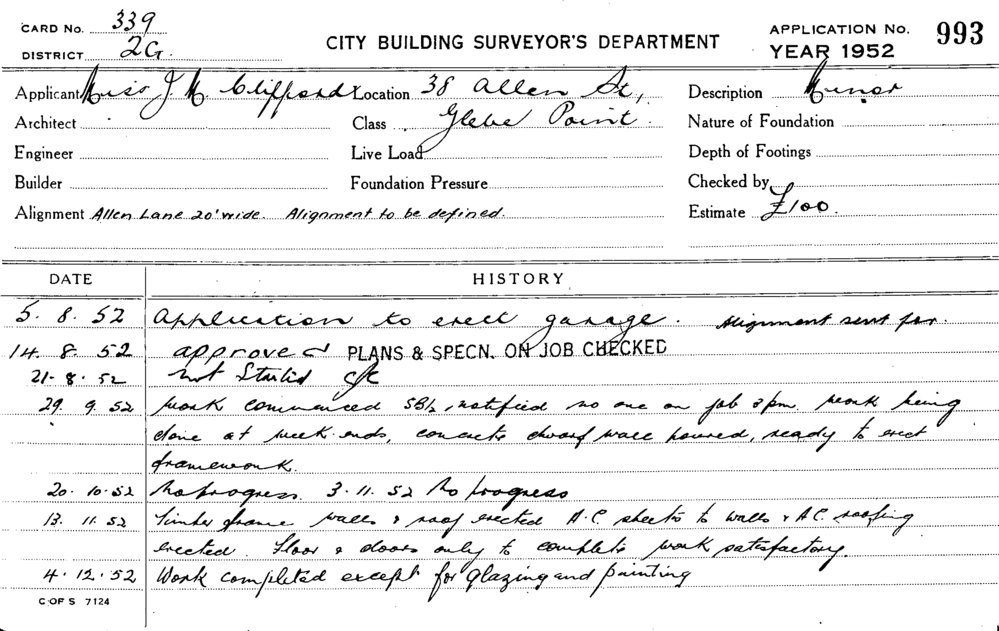 CARD No. 339
DISTRICT 2G.
CITY BUILDING SURVEYOR'S DEPARTMENT
APPLICATION No. 993
YEAR 1952
Applicant Miss J. M. Clifford Location 38 Allen St, Description Minor
Architect Class Glebe Point. Nature of Foundation
Engineer Live Load Depth of Footings
Builder Foundation Pressure Checked by
Alignment Allen Lane 20' wide. Alignment to be defined. Estimate £100.
DATE HISTORY
5. 8. 52 Application to erect garage. Alignment sent for.
14. 8. 52 approved PLANS & SPECN. ON JOB CHECKED
21. 8. 52 Not Started
29. 9. 52 Work commenced notified no one on job 2pm. work being
done at week-ends, concrete dwarf wall poured, ready to erect
framework.
20. 10. 52 No progress 3. 11. 52 No progress
13. 11. 52 Timber frame walls & roof erected A.C. sheets to walls & A.C. roofing
erected. Floor & doors only to complete work satisfactory.
4. 12. 52 Work completed except for glazing and painting
C OF S 7124